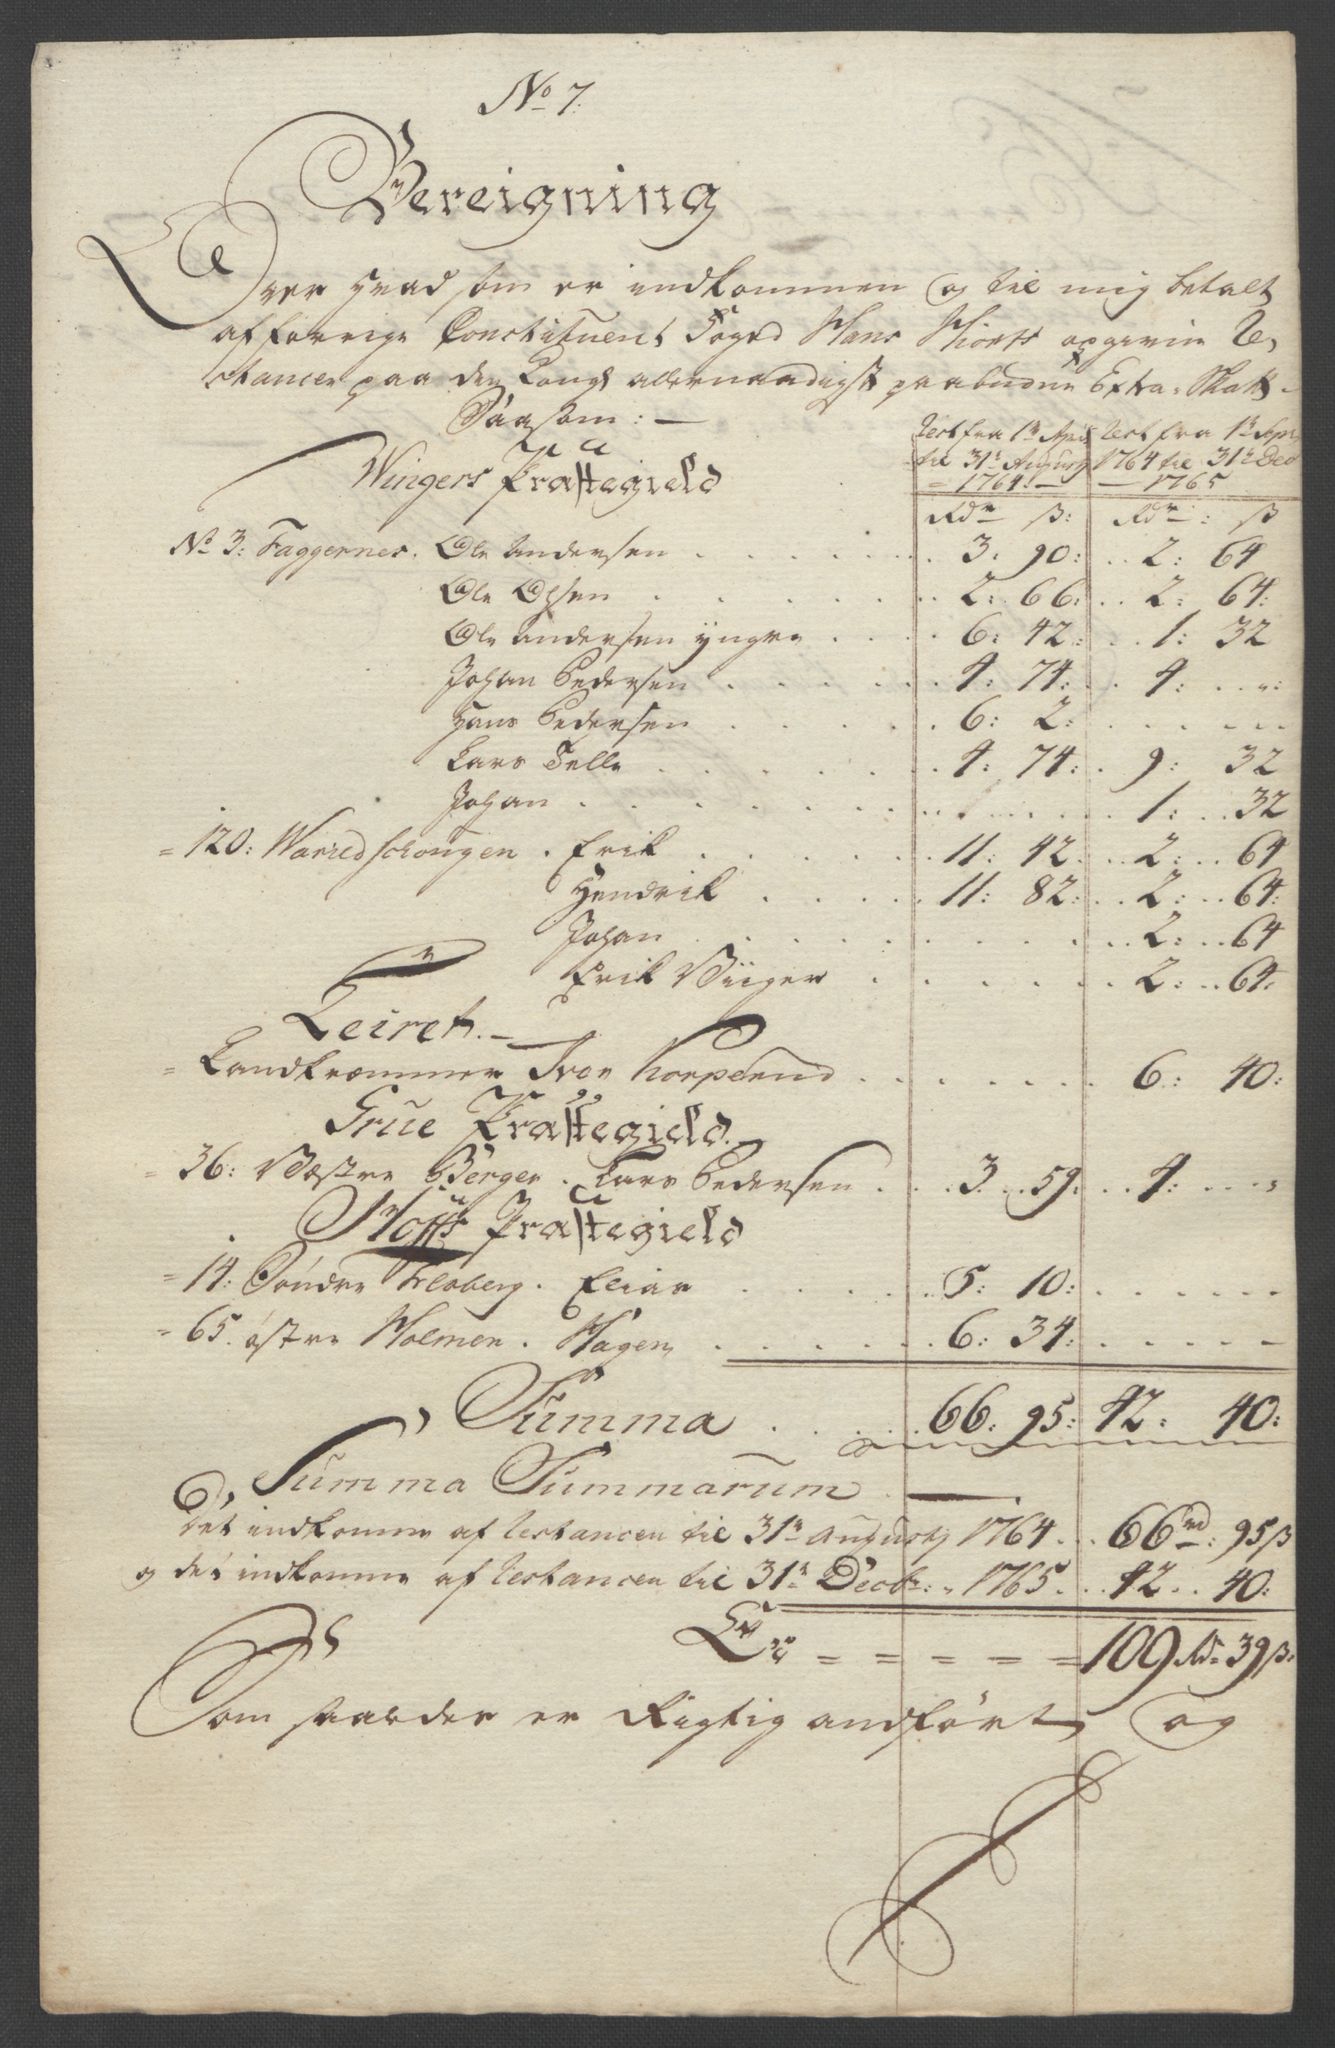 No 7.
Bereigning
Over hvad som er indkommen og til mig betalt
af forrige Constituent Foged Hans Hiorts opgivne Re-
stancer paa den Kongl allernaadigst paabudne Extra-Skatt -
Saasom: —
Rest fra 1te Apr til 31te Augusty = 1764: —
Rest fra 1te Apr 1764 til 31te Dec — 1765
Wingers Præstegield
Rdr ß: Rdr: ß
No 3: Faggernes. Ole Andersen . . . 3: 90: . . 2: 64
Ole Olsen . . . 2: 66: . . 2: 64:
Ole Andersen yngre . . . 6: 42: . . 1: 32
Johan Pedersen . . . 4: 74: . . 4: . . „:
Hans Pedersen . . . 6: 2: . . .
Lars Telle . . . 4: 74: . . 9: 32
Johan . . . 1: . . 32
= 120: Warredschougen . Erik . . . 11: 42: . . 2: . . 64
Hendrik . . . 11: 82: . . 2: . . 64:
Johan . . . 2: . . 64
Erik . . . 2: . . 64:
Leiret. —
= Landkræmmer Iver Korperud . . . 6: 40:
Grue Præstegield.
= 36: Wæstre Berger . Lars Pedersen . . . 3 . . 59: . . 4: . . „
Hoffs Præstegield
= 14: Søndre Floberg . Elias . . . 5: 10: . . .
= 65. østre Holmen . Hagen . . . 6: 34: . . .
Summa . . . 66: 95: 42: 40:
Summa Summarum —
Det indkomne af Restancen til 31te Augusty 1764 . . 66rd: 95ß
og det indkomne af Restancen til 31te Decbr: 1765 . . 42 . . 40:
Er = = = = = 109 Rdr 39ß.
Som saaledes er Rigtig andført, og